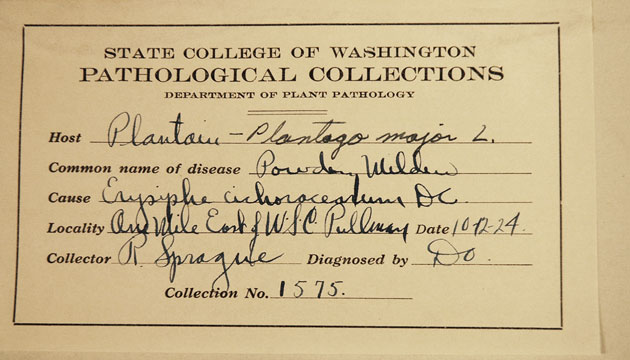 STATE COLLEGE OF WASHINGTON
PATHOLOGICAL COLLECTIONS
DEPARTMENT OF PLANT PATHOLOGY
Host Plantain - Plantago major L.
Common name of disease Powdery Mildew
Cause Erysiphe cichoracearum DC
Locality One Mile East of W.S.C Pullman Date 10-12-24.
Collector R. Sprague Diagnosed by Do.
Collection No. 1575.